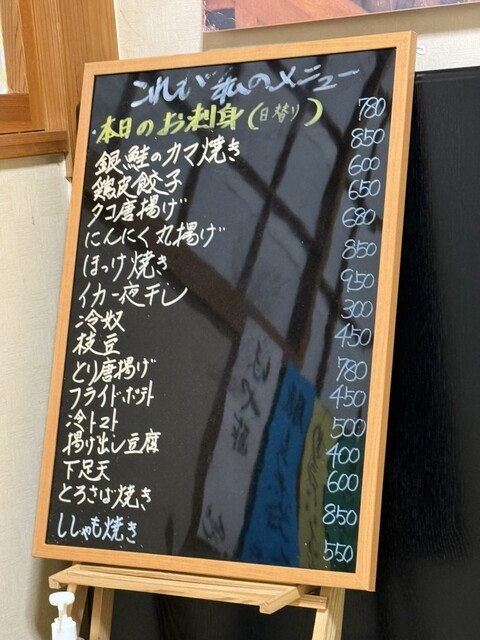 これが私のメニュー
・本日のお刺身(日替り) 780
銀鮭のカマ焼き 850
鶏皮餃子 600
タコ唐揚げ 650
にんにく丸揚げ 680
ほっけ焼き 850
イカ一夜干し 950
冷奴 300
枝豆 450
とり唐揚げ 780
フライドポテト 450
冷トマト 500
揚げ出し豆腐 400
下足天 600
とろさば焼き 850
ししゃも焼き 550